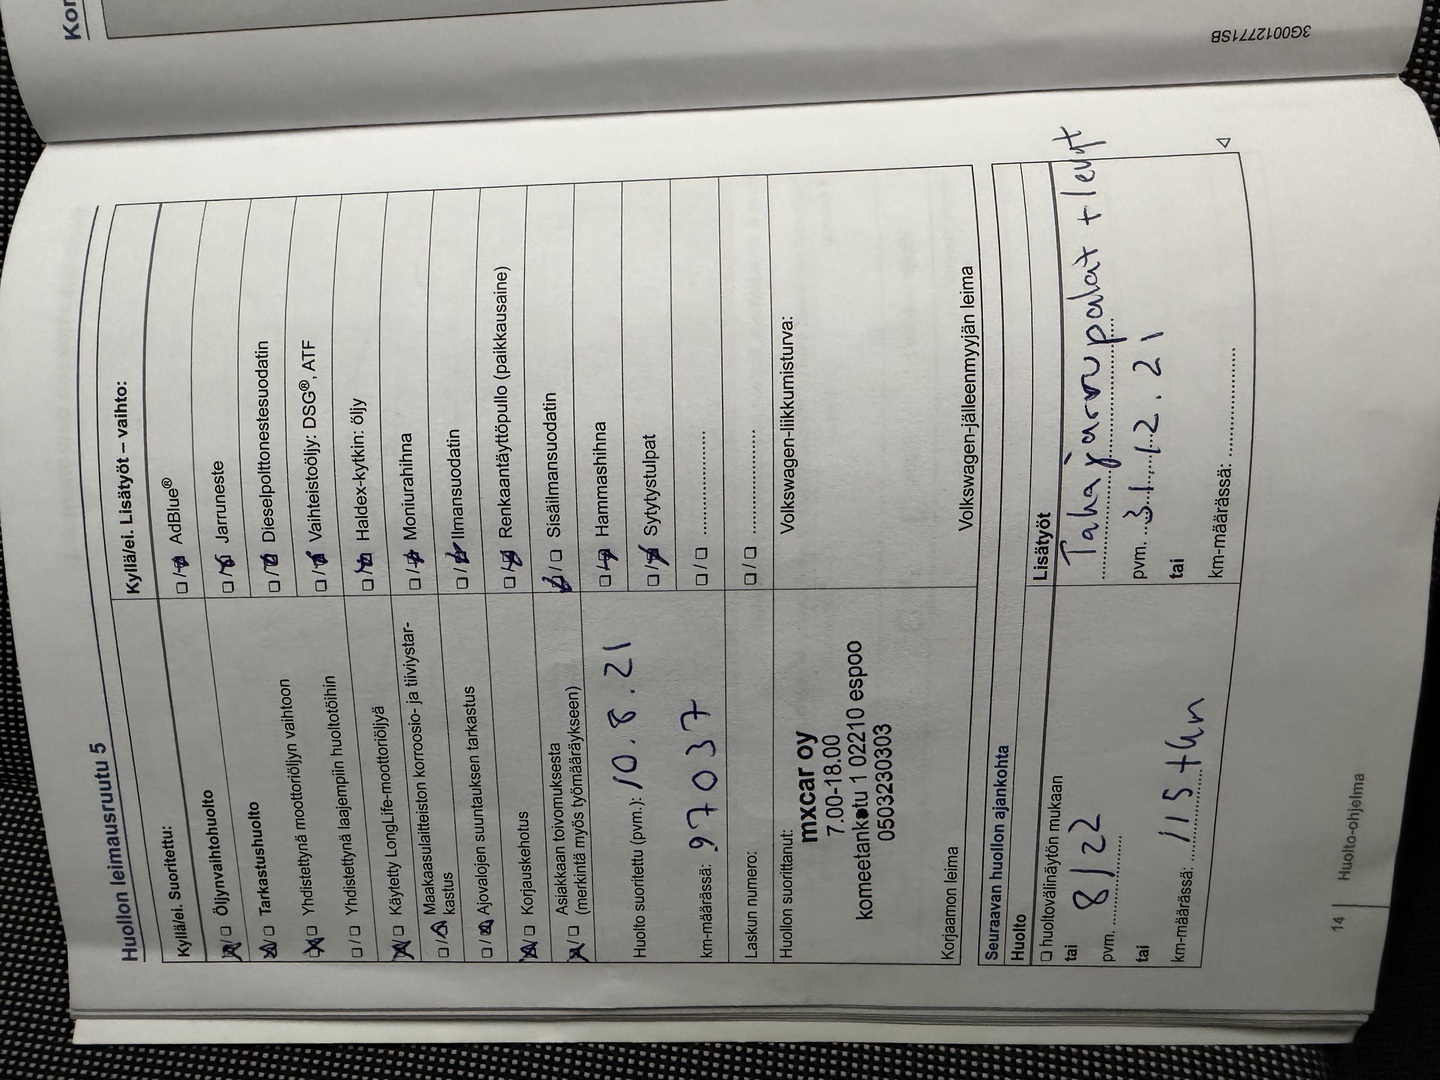 Kor
3G0012771SB
Huollon leimausruutu 5
Kyllä/ei. Suoritettu:
☒/☐ Öljynvaihtohuolto
☒/☐ Tarkastushuolto
☒/☐ Yhdistettynä moottoriöljyn vaihtoon
☐/☐ Yhdistettynä laajempiin huoltotöihin
☒/☐ Käytetty LongLife-moottoriöljyä
☐/☒ Maakaasulaitteiston korroosio- ja tiiviystar-
kastus
☐/☒ Ajovalojen suuntauksen tarkastus
☒/☐ Korjauskehotus
☒/☐ Asiakkaan toivomuksesta
(merkintä myös työmääräykseen)
Huolto suoritettu (pvm.): 10.8.21
km-määrässä: 97037
Laskun numero:
Huollon suorittanut:
mxcar oy
7.00-18.00
komeetankatu 1 02210 espoo
0503230303
Korjaamon leima
Kyllä/ei. Lisätyöt – vaihto:
☐/☒ AdBlue®
☐/☒ Jarruneste
☐/☒ Dieselpolttonestesuodatin
☐/☒ Vaihteistoöljy: DSG®, ATF
☐/☒ Haldex-kytkin: öljy
☐/☒ Moniurahihna
☐/☒ Ilmansuodatin
☐/☒ Renkaantäyttöpullo (paikkausaine)
☒/☐ Sisäilmansuodatin
☐/☒ Hammashihna
☐/☒ Sytytystulpat
☐/☐ ....................
☐/☐ ....................
Volkswagen-liikkumisturva:
Volkswagen-jälleenmyyjän leima
Seuraavan huollon ajankohta
Huolto
☐ huoltovälinäytön mukaan
tai
pvm. 8/22
tai
km-määrässä: 115 tkm
Lisätyöt
Taka jarrupalat + levyt
pvm. 31.12.21
tai
km-määrässä: ....................
◁
14 | Huolto-ohjelma